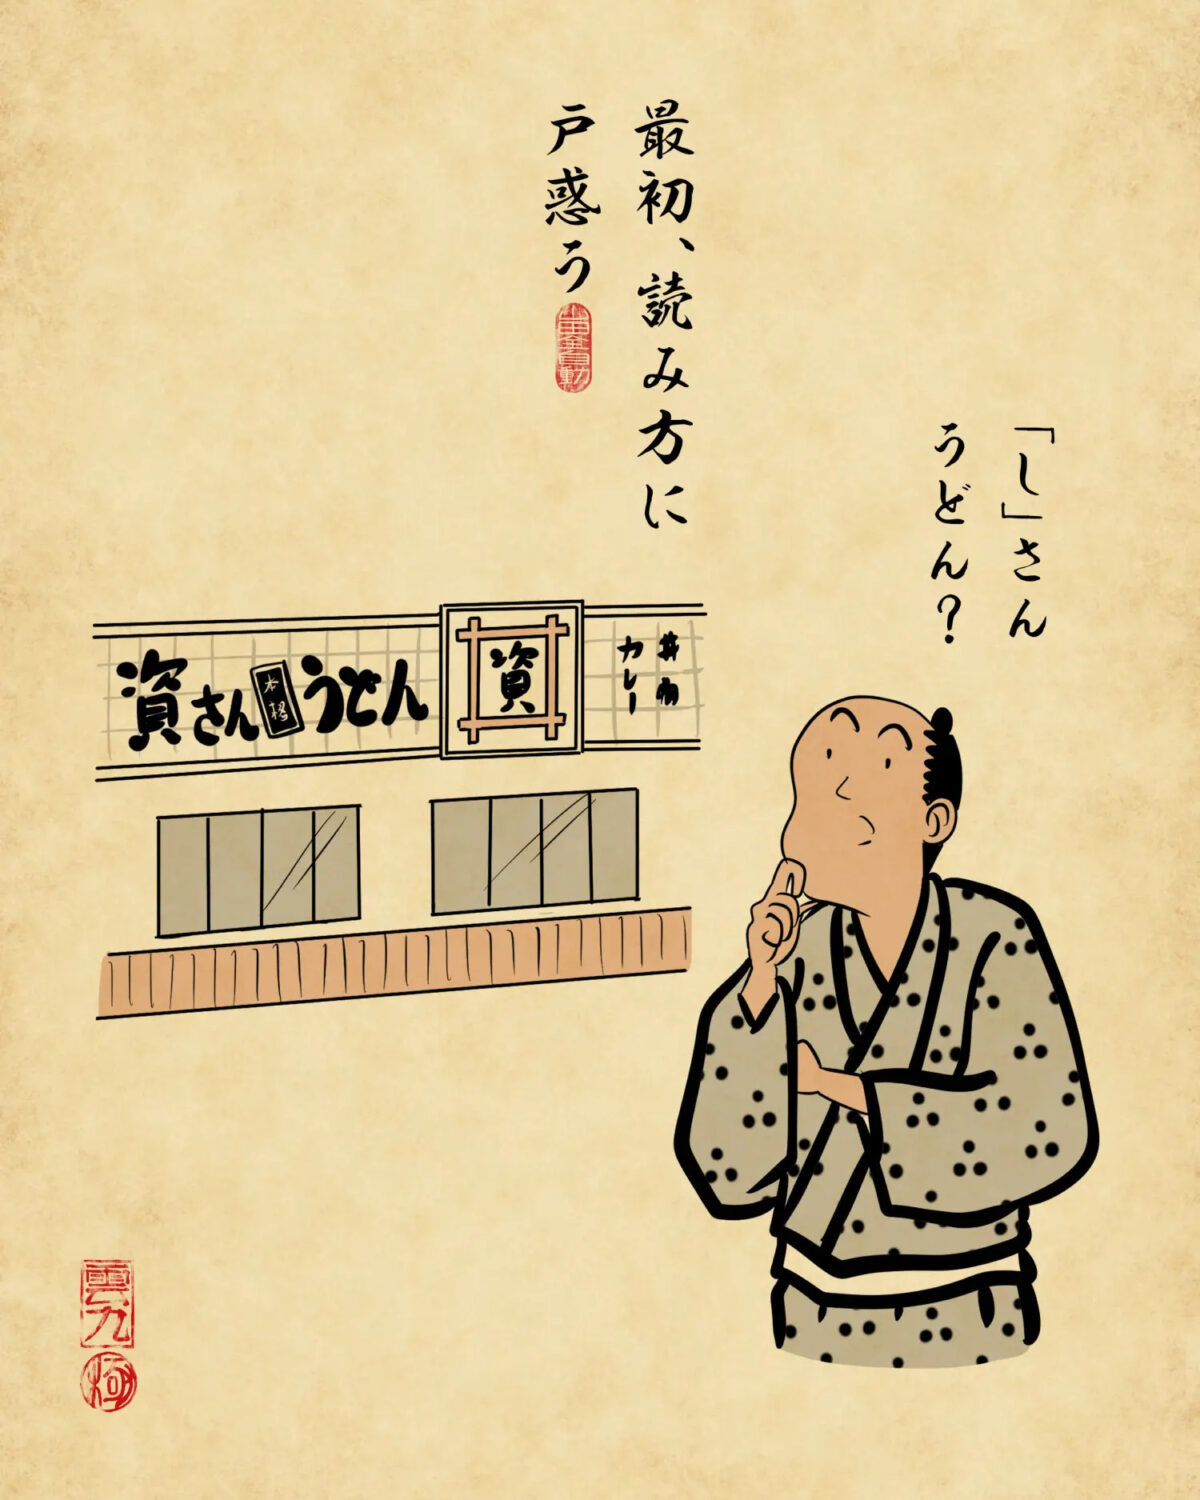 最初、読み方に
戸惑う
「し」さん
うどん?
資さん
本格
うどん
資
丼物
カレー
雲九
極